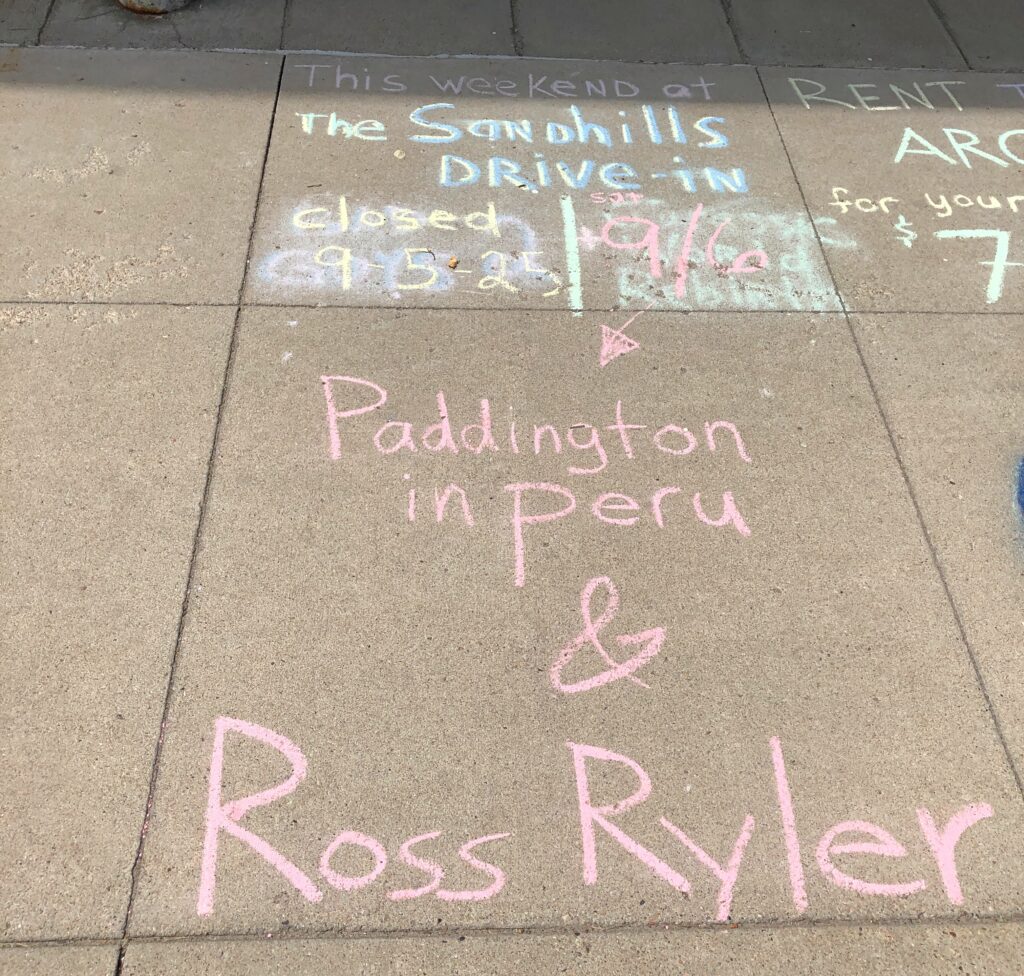 This weekend at
The Sandhills
DRIVE-iN
closed
9-5-25
SAT
9/6
Paddington
in Peru
&
Ross Ryler
RENT
for your
$7